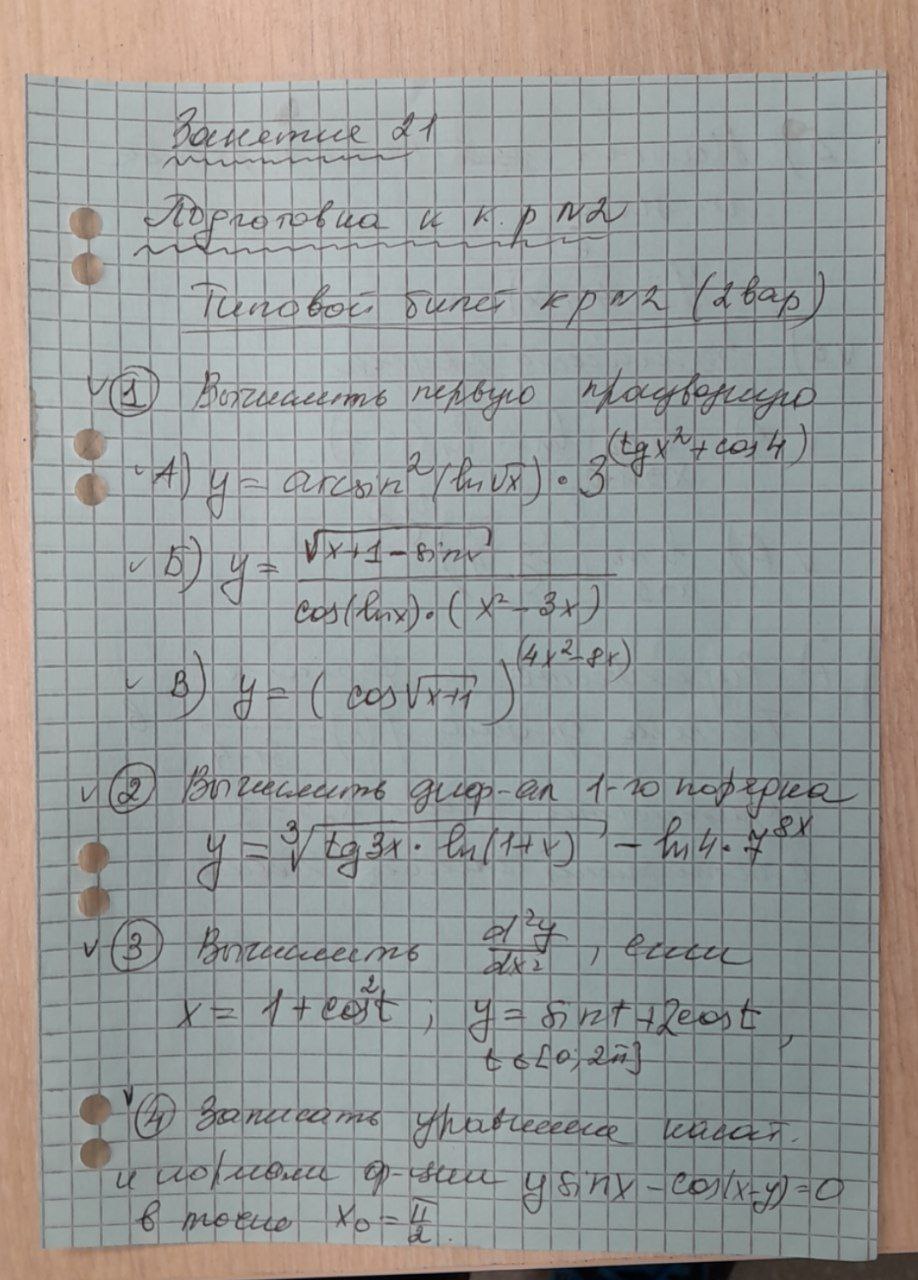 Занятие 21
Подготовка к к.р №2
Типовой билет кр №2 (2 вар)
1 Вычислить первую производную
А) y = arcsin²(ln√x) · 3^(tgx²+cos4)
Б) y = √(x+1-sinx) / cos(lnx)·(x²-3x)
В) y = (cos√(x+1))^(4x²-8x)
2 Вычислить диф-ал 1-го порядка
y = ∛(tg3x · ln(1+x)) - ln4·7^8x
3 Вычислить d²y/dx², если
x = 1+cos²t ; y = sint+2cost,
t∈[0; 2π]
4 Записать уравнение касат.
и нормали ф-ции y sinx - cos(x-y)=0
в точке x₀ = π/2.